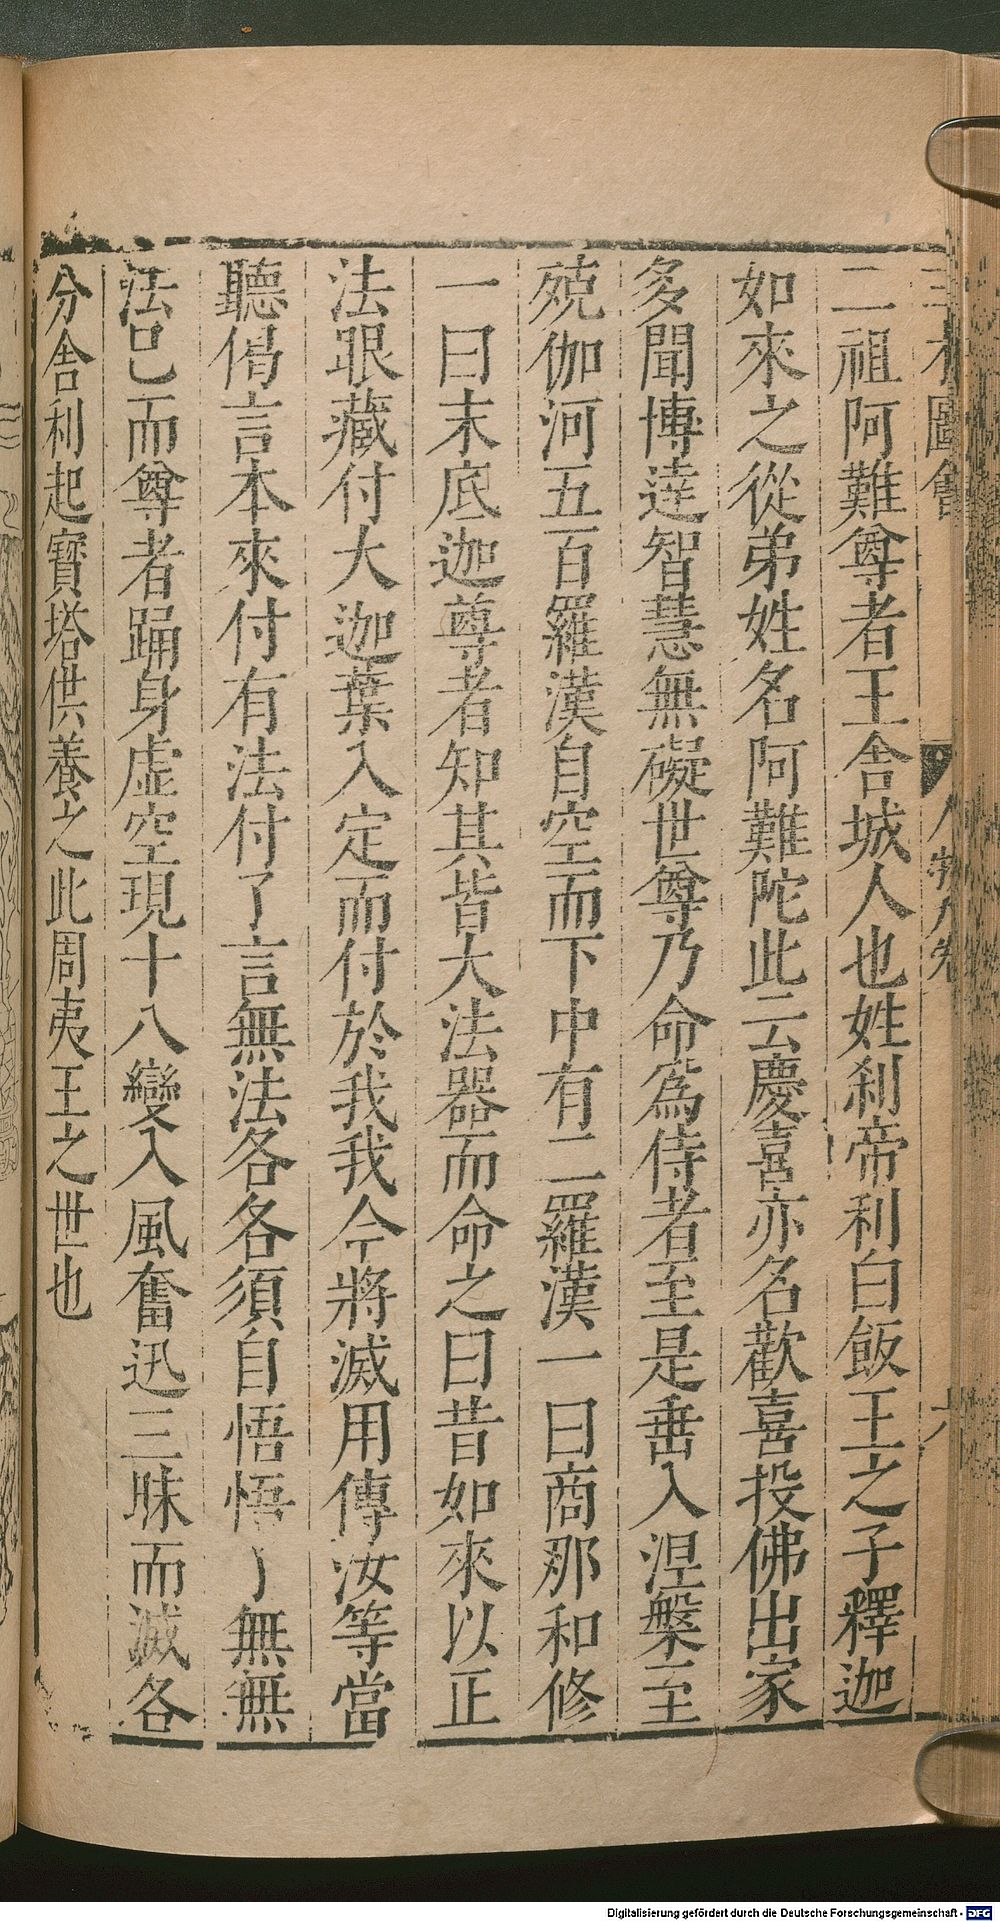 三才圖會 人物九卷 六
二祖阿難尊者王舍城人也姓刹帝利白飯王之子釋迦
如來之從弟姓名阿難陀此云慶喜亦名歡喜投佛出家
多聞博達智慧無礙世尊乃命爲侍者至是垂入涅槃至
殑伽河五百羅漢自空而下中有二羅漢一曰商那和修
一曰末底迦尊者知其皆大法器而命之曰昔如來以正
法眼藏付大迦葉入定而付於我我今將滅用傳汝等當
聽偈言本來付有法付了言無法各各須自悟悟了無無
法已而尊者踊身虛空現十八變入風奮迅三昧而滅各
分舍利起寶塔供養之此周夷王之世也
Digitalisierung gefördert durch die Deutsche Forschungsgemeinschaft - DFG